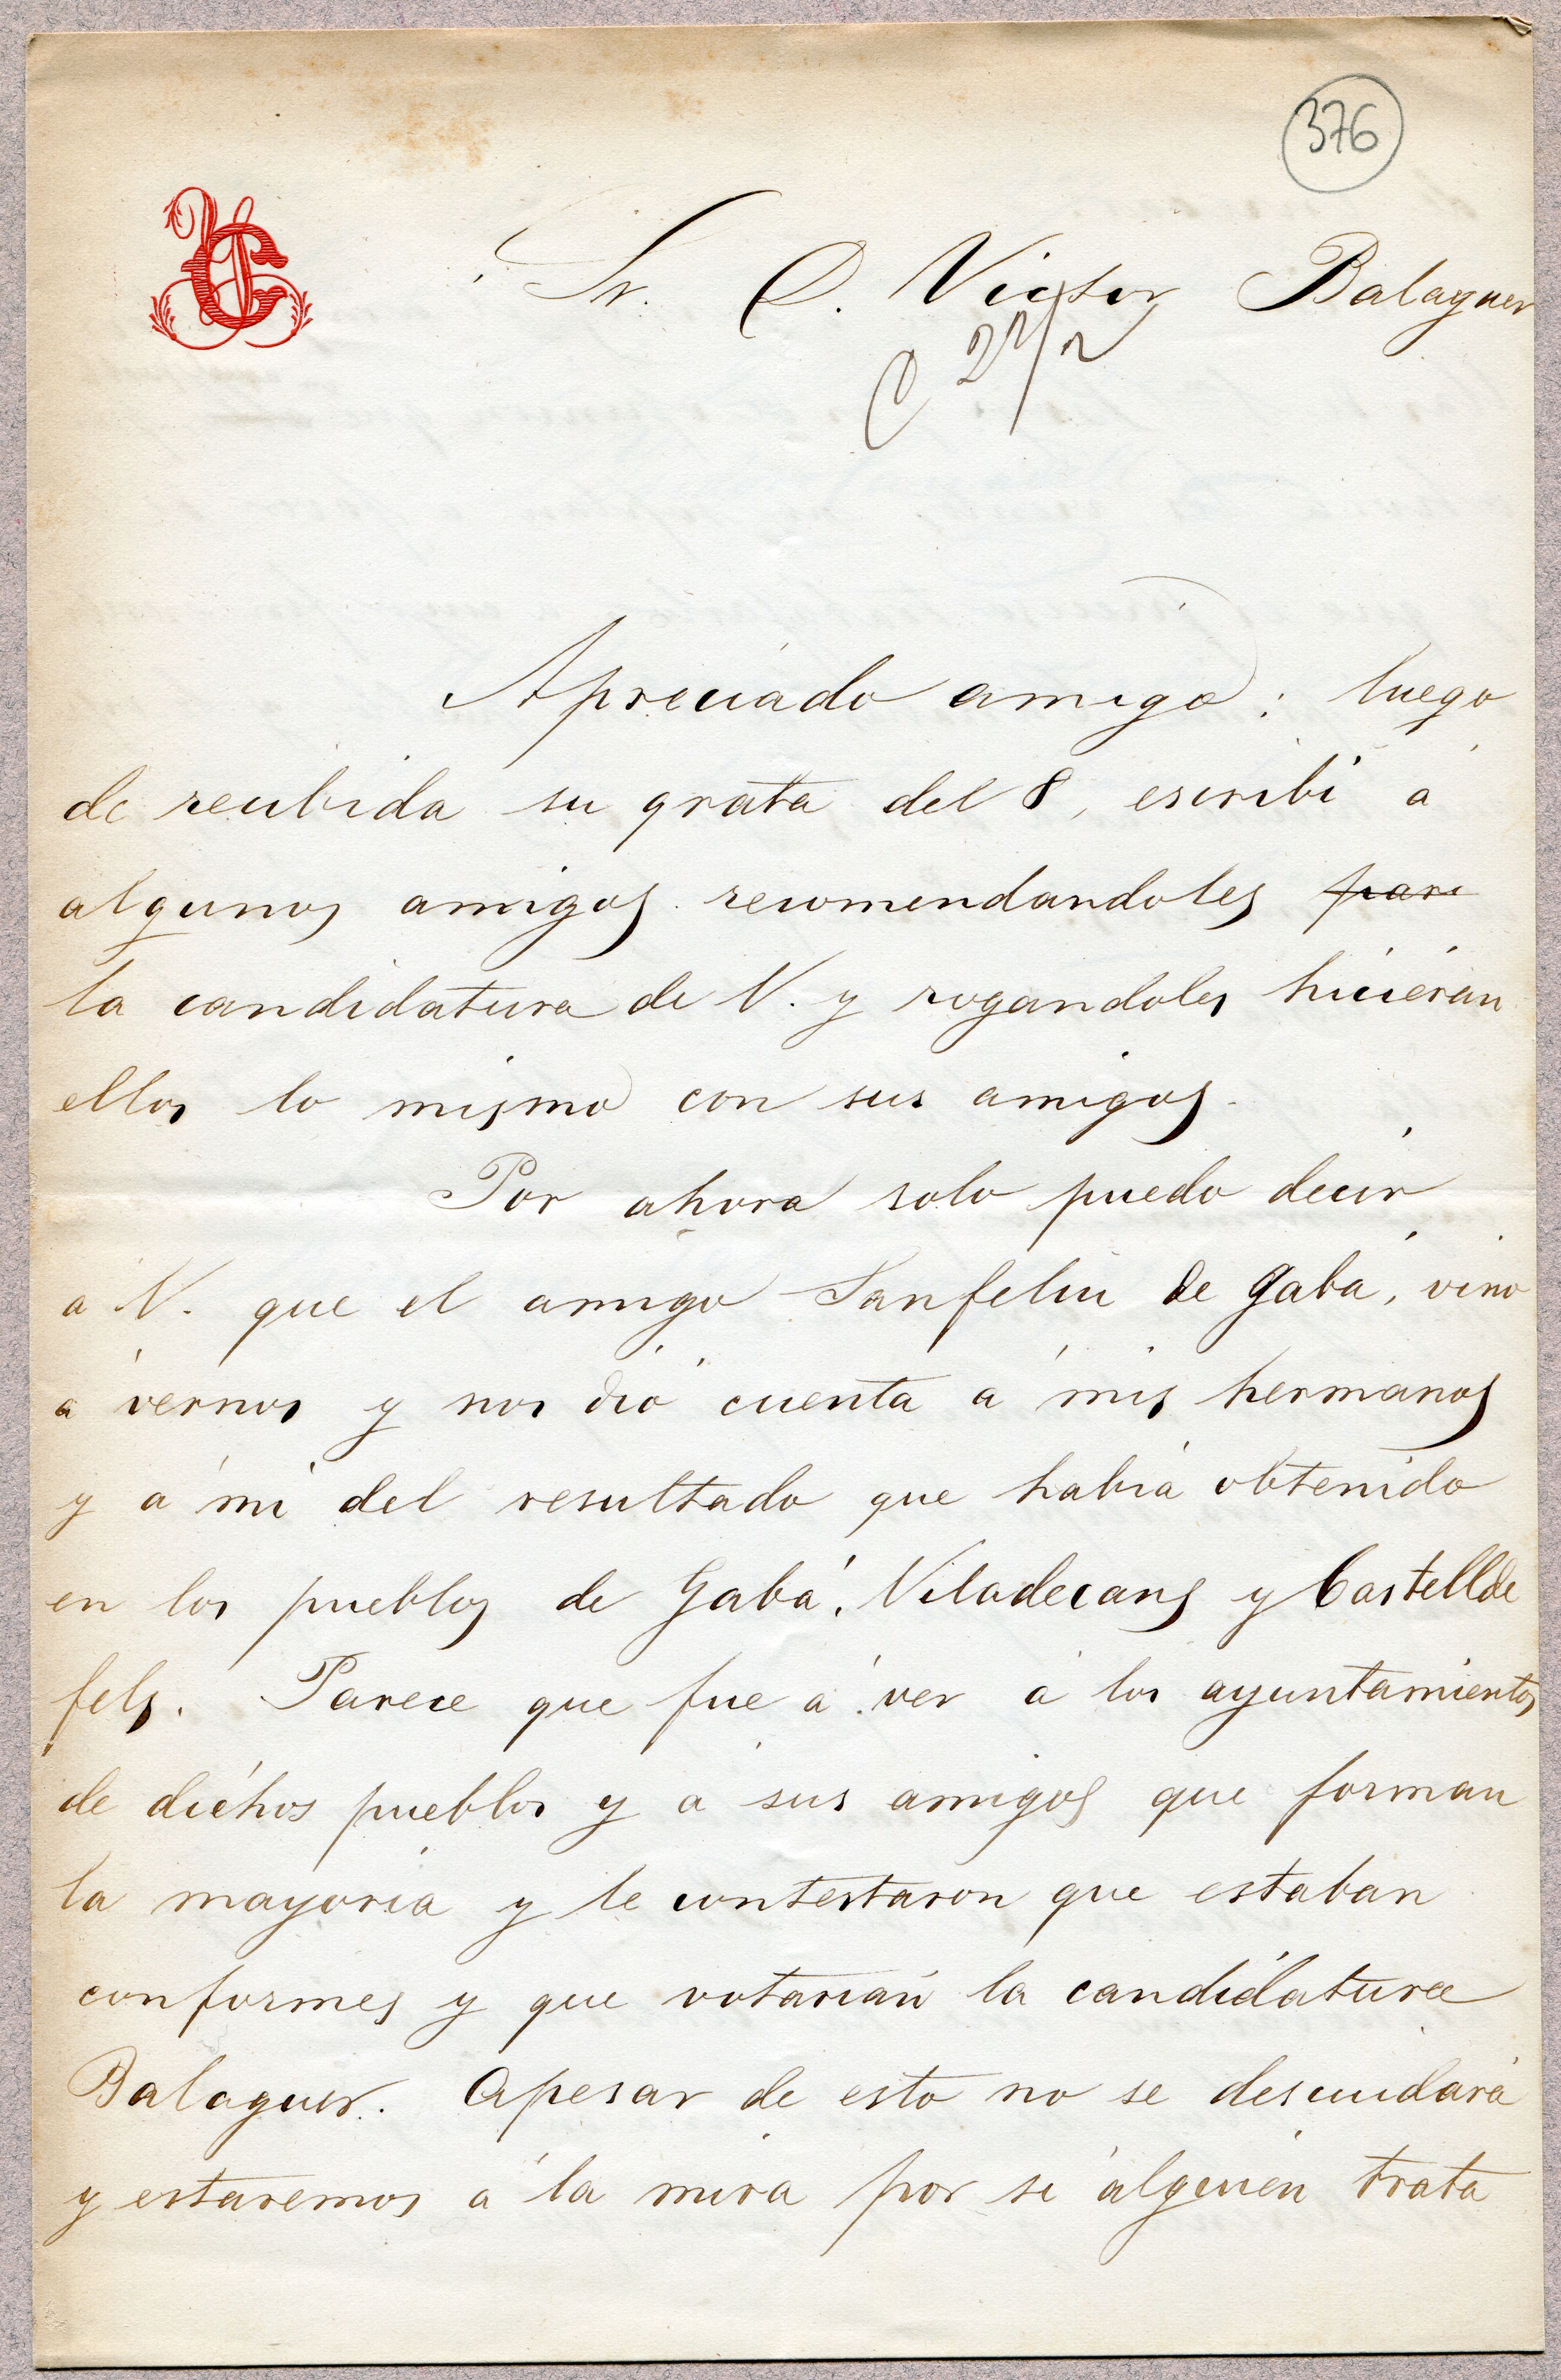 376
Sr. D. Victor Balaguer
C 22/2
Apreciado amigo: luego
de recibida su grata del 8, escribí á
algunos amigos recomendandoles para
la candidatura de V. y rogandoles hicieran
ellos lo mismo con sus amigos.
Por ahora solo puedo decir
a V. que el amigo Sanfeliu de Gabá, vino
á vernos y nos dió cuenta á mis hermanos
y á mi del resultado que habia obtenido
en los pueblos de Gabá, Viladecans y Castellde
fels. Parece que fue á ver á los ayuntamientos
de dichos pueblos y á sus amigos que forman
la mayoria y le contestaron que estaban
conformes y que votarian la candidatura
Balaguer. Apesar de esto no se descuidará
y estaremos á la mira por si alguien trata